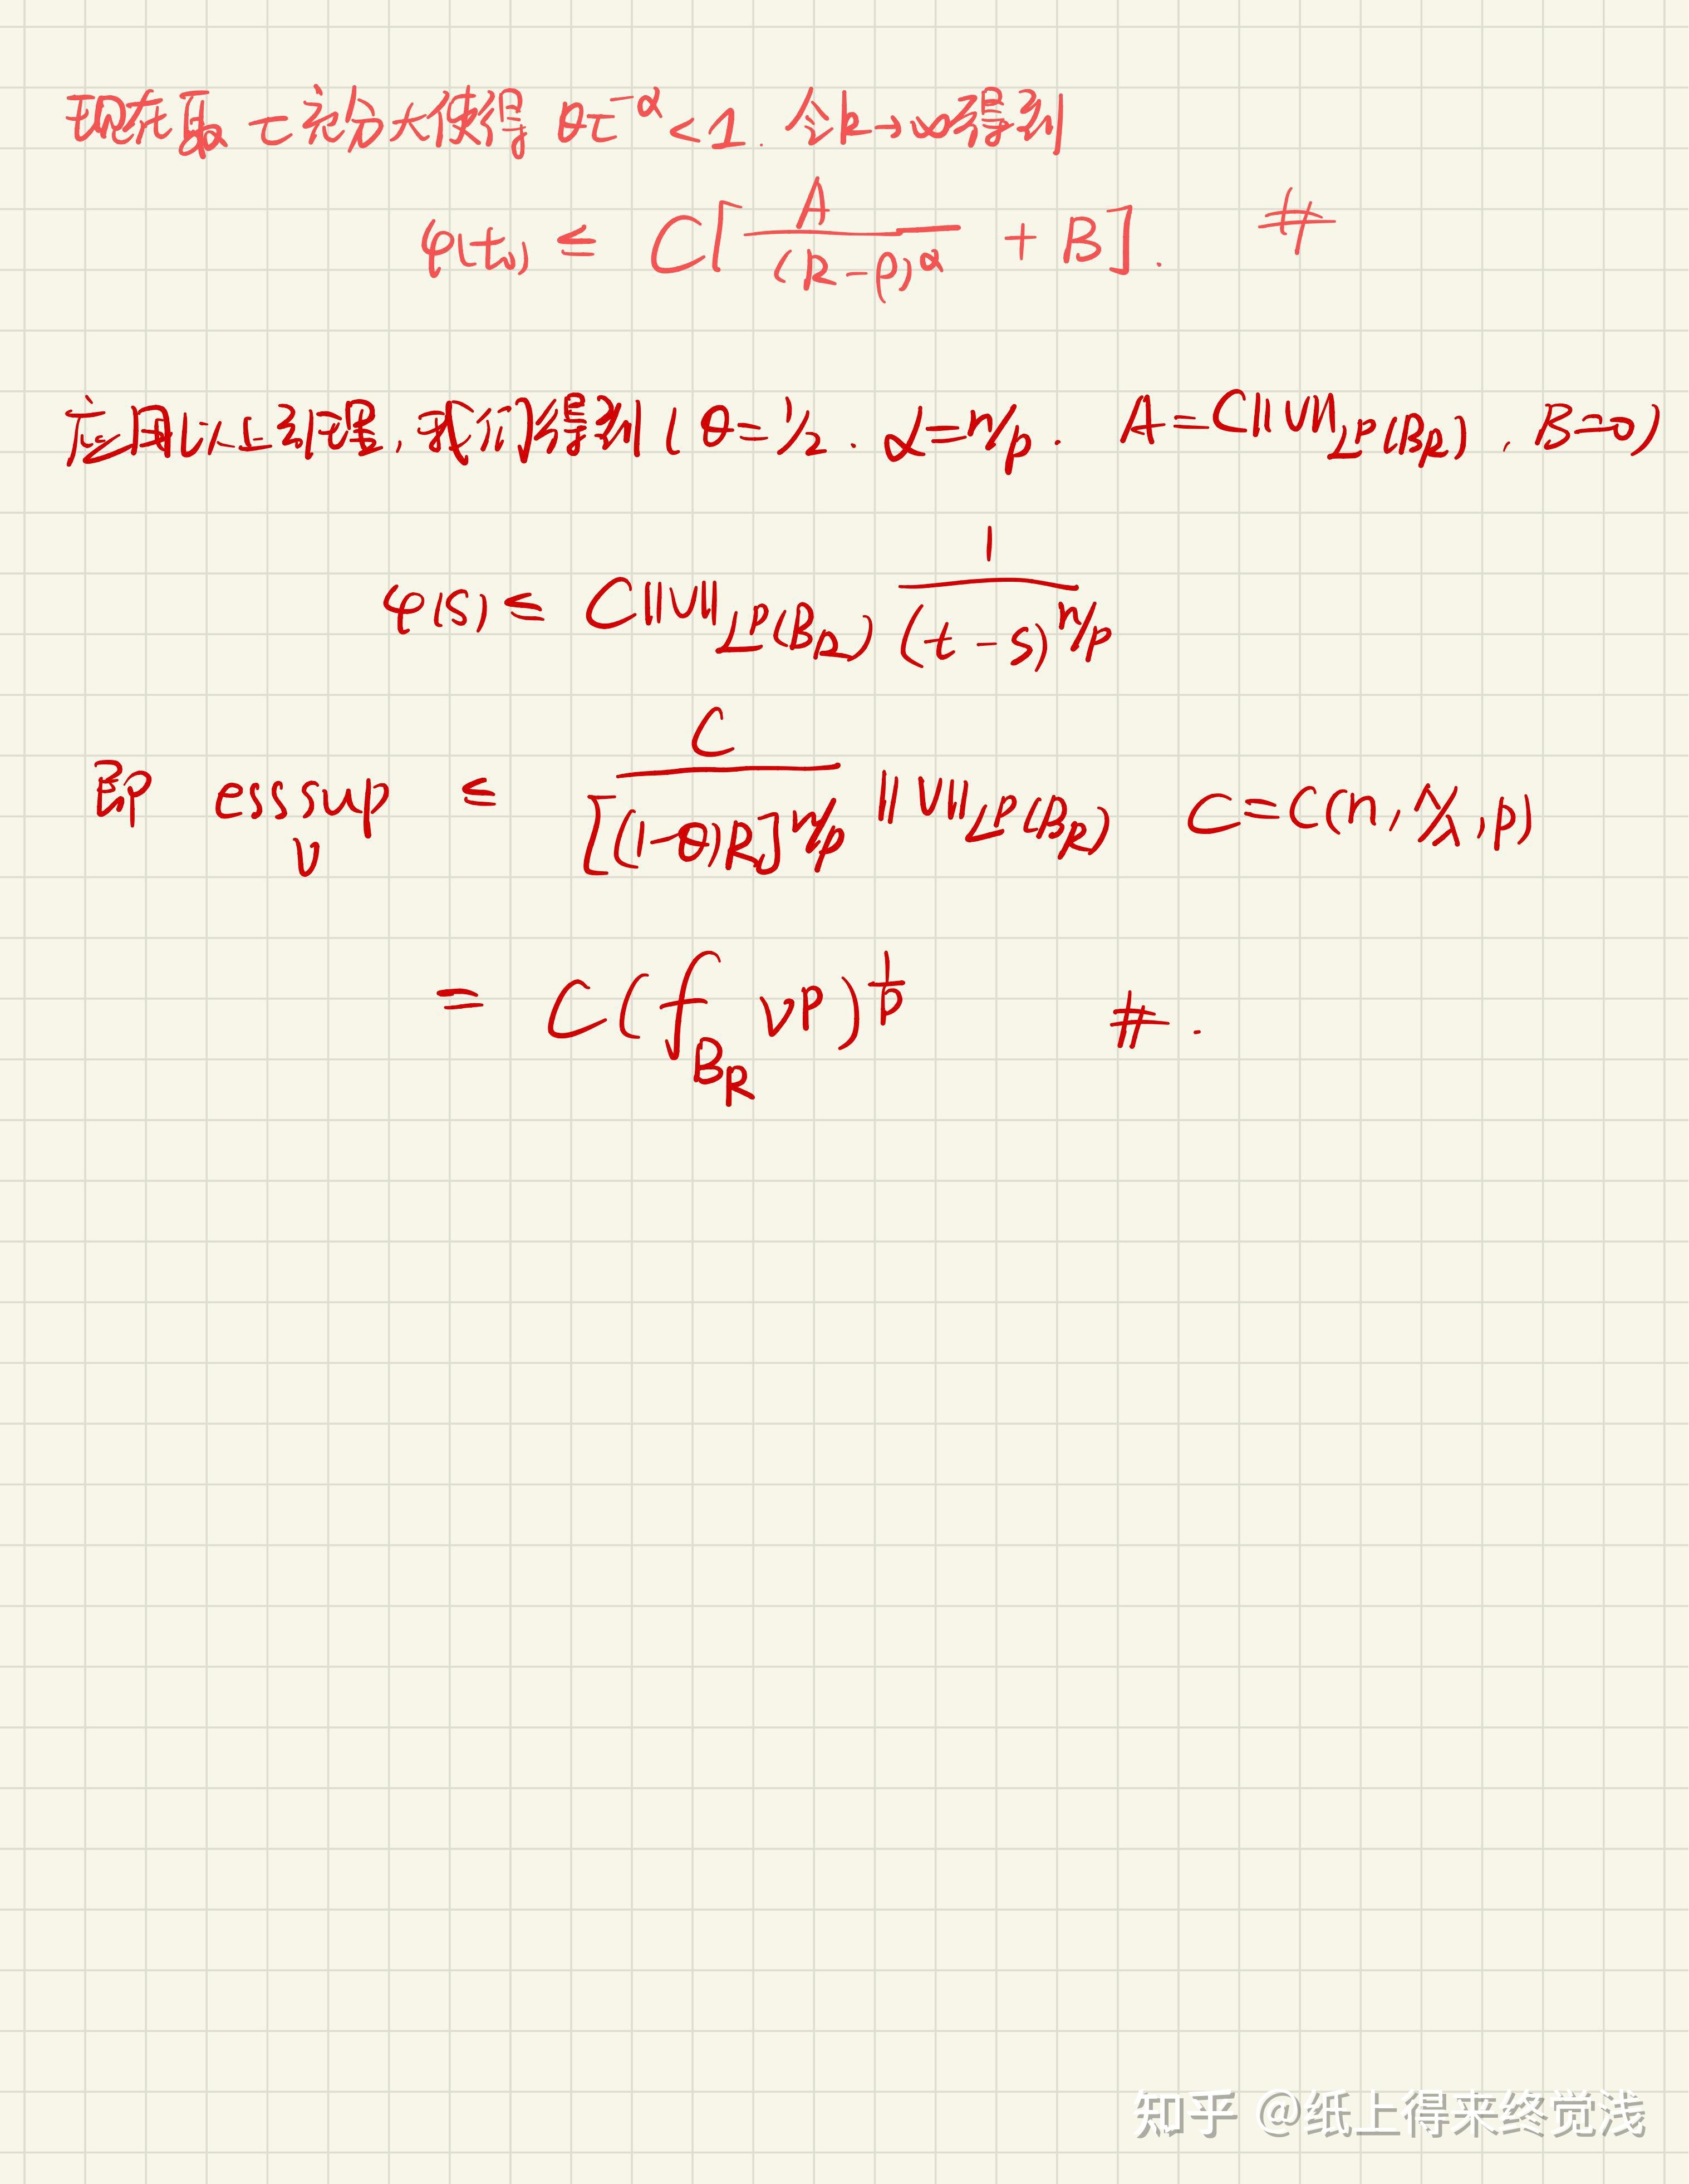 现在取 τ 充分大使得 θτ^{-α} < 1. 令k→∞得到
φ(t₀) ≤ C[ A / (R-ρ)^α + B ]. #
应用以上引理, 我们得到 ( θ=1/2. α=n/p. A=C||V||_{L^p(B_R)}, B=0)
φ(s) ≤ C||V||_{L^p(B_R)} 1 / (t-s)^{n/p}
即 esssup v ≤ C / [(1-θ)R]^{n/p} ||V||_{L^p(B_R)} C=C(n, Λ/λ, p)
= C(⨍_{B_R} v^p)^{1/p} #.
知乎 @纸上得来终觉浅